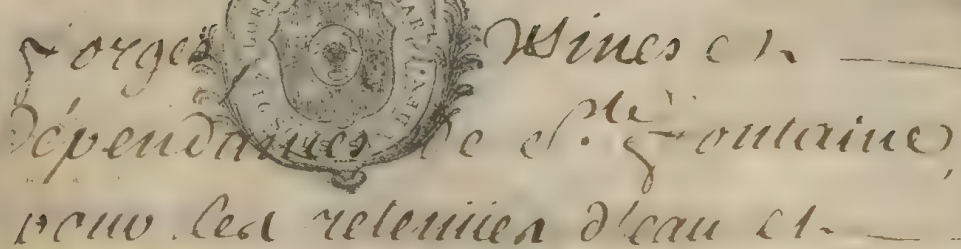 forges Usines et
dépendances de Ste. Fontaine,
pour les retenües d'eau et